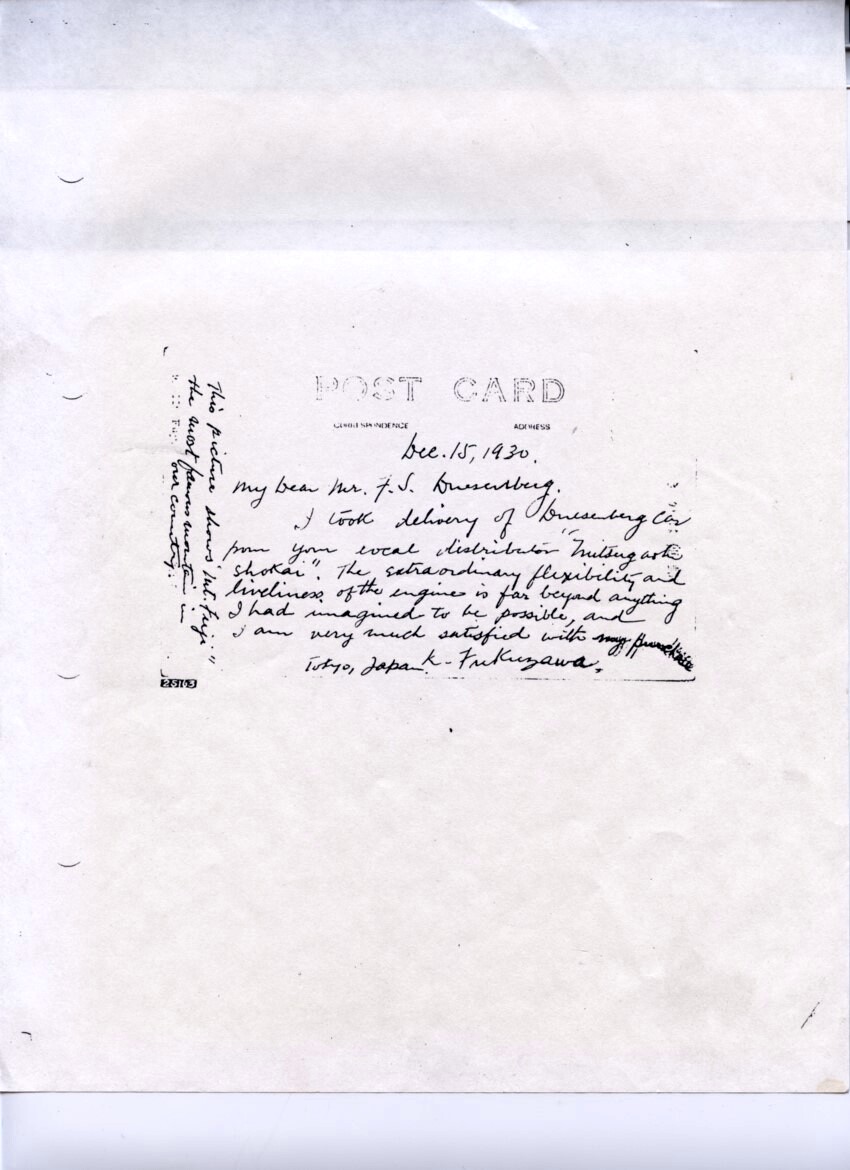 POST CARD
CORRESPONDENCE ADDRESS
Dec. 15, 1930.
My Dear Mr. F. S. Duesenberg.
I took delivery of Duesenberg Car
from your local distributor "Mitsugaoh
Shokai". The extraordinary flexibility and
liveliness of the engine is far beyond anything
I had imagined to be possible, and
I am very much satisfied with my purchase
Tokyo, Japan K. Fukuzawa.
This picture shows "Mt. Fuji"
the most famous mountain in
our country.
25163